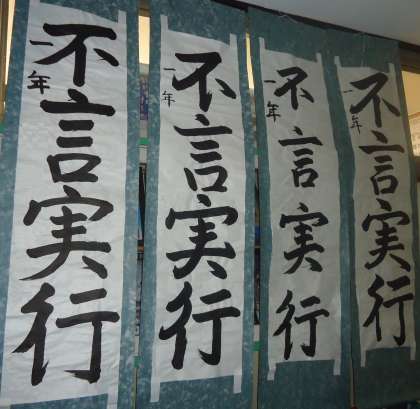 不言実行
一年
不言実行
一年
不言実行
一年
不言実行
一年